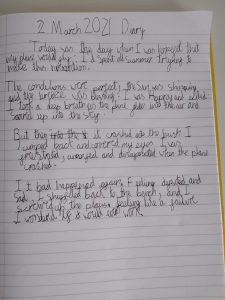 2 March 2021 Diary
Today was the day when I was hopeful that
my plane would fly. I'd spent all summer trying to
make this
The conditions were perfect; the sun was shinging
and the breeze was blowing. I was Happy and excited.
I took a deep breath as the plane glided into the air and
soared up into the sky.
But then into the it crashed into the bush I
jumped back and covered my eyes. I was
frustrated, annoyed and disapointed when the plane
crashed.
It had happened again, Feeling dejected and
sad, I shuffled back to the bench, and I
screwed up the plans, feeling like a failure
I wonderd if it would ever work.